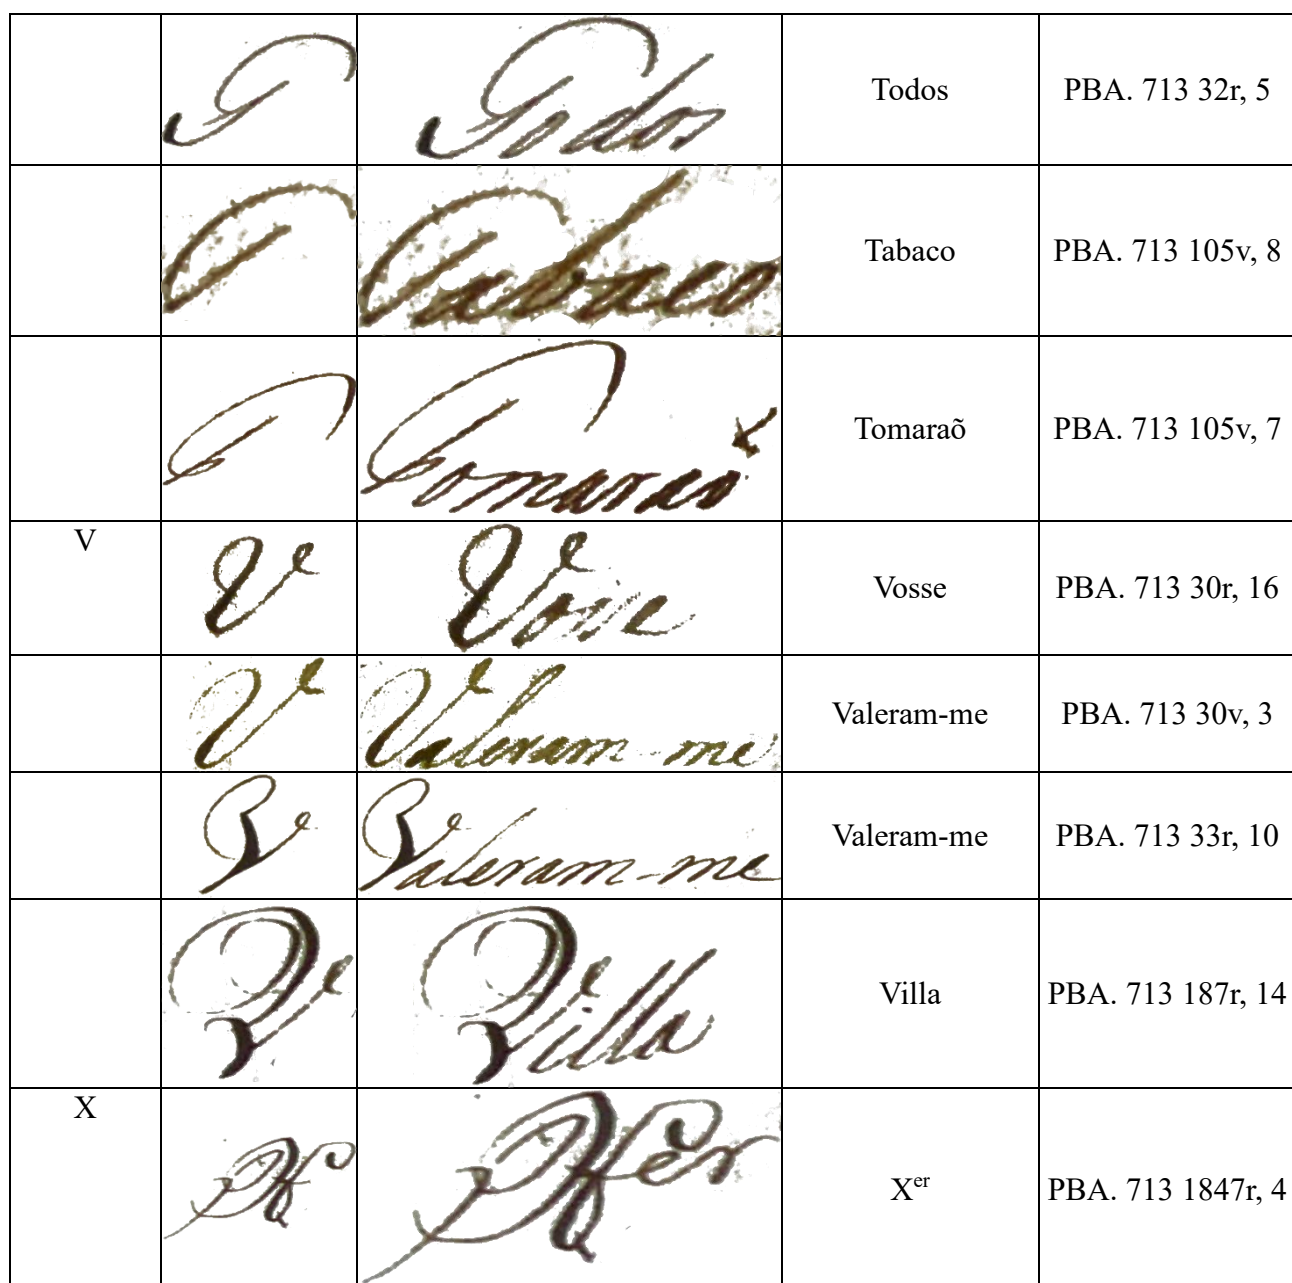 T Todos Todos PBA. 713 32r, 5
T Tabaco Tabaco PBA. 713 105v, 8
T Tomaraõ Tomaraõ PBA. 713 105v, 7
V V Vosse Vosse PBA. 713 30r, 16
V Valeram-me Valeram-me PBA. 713 30v, 3
V Valeram-me Valeram-me PBA. 713 33r, 10
V Villa Villa PBA. 713 187r, 14
X X Xer X^er PBA. 713 1847r, 4